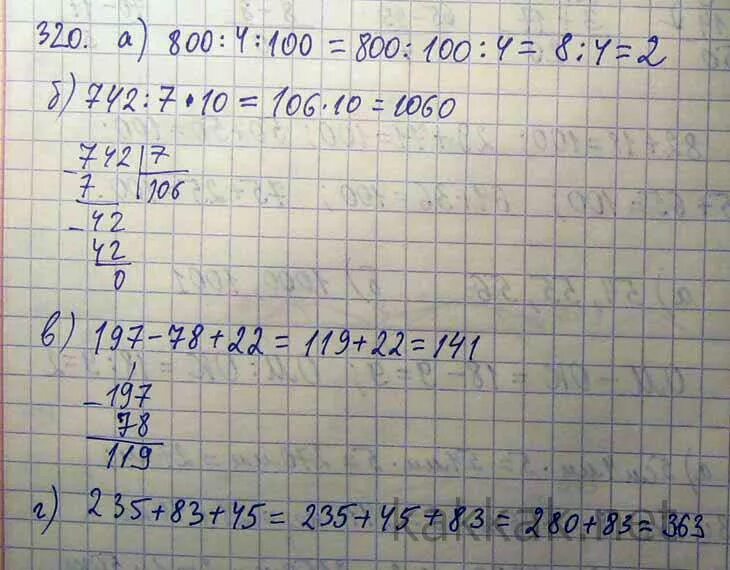 320. а) 800:4:100 = 800:100:4 = 8:4 = 2
б) 742:7•10 = 106·10 = 1060
- 742 | 7
7 | 106
- 42
42
0
в) 197 - 78 + 22 = 119 + 22 = 141
- 197
78
119
г) 235 + 83 + 45 = 235 + 45 + 83 = 280 + 83 = 363